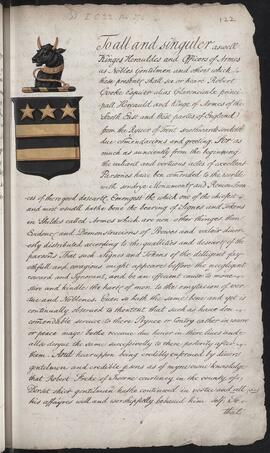 122
To all and singuler aswell
Kinges Herauldes and Officers of Armes
as Nobles Gentilmen and others which
these presents shall see or heare Robert
Cooke Esquier alias Clarencieulx princi-
pall Herauld and Kinge of Armes of the
South East and West partes of England
from the Ryver of Trent southwards sendeth
due comendacons and greeting. For as
much as aunciently from the begynnyng
the valiant and vertuous actes of excellent
Persones have ben comended to the worlde
with sondrye Monumentes and Remembran
ces of there good desartes Emongest the which one of the chiefest
and most usuall hathe ben the bearing of Signes and Tokens
in Shildes called Armes which are non other thinges then
Evidences and Demonstracions of Prowes and valoir divers
ersly distributed according to the qualities and desertes of the
parsons That such Signes and Tokens of the diligent fay-
thfull and couragious might appeare before the negligent
coward and Ignorant, and be an efficient cause to move
stirr and kindle the hartes of men to the imytacion of ver
tue and Noblenes. Even so hath the same bene and yet is
continually observed to thentent that such as have don
comendable service to there Prynce or Contry either in warr
or peace may bothe receave due honor in there lives and
also deryve the same successively to there posterity after
them. And heareuppon being credibly enformed by divers
gentilmen and credible persons as of myne owne knowledge
that Robert Freke of Iwerne courteney in the county of
Dorset that gentilman hathe contineued in vertue and all
his affayres well and worshippfully behaved him self, So
that